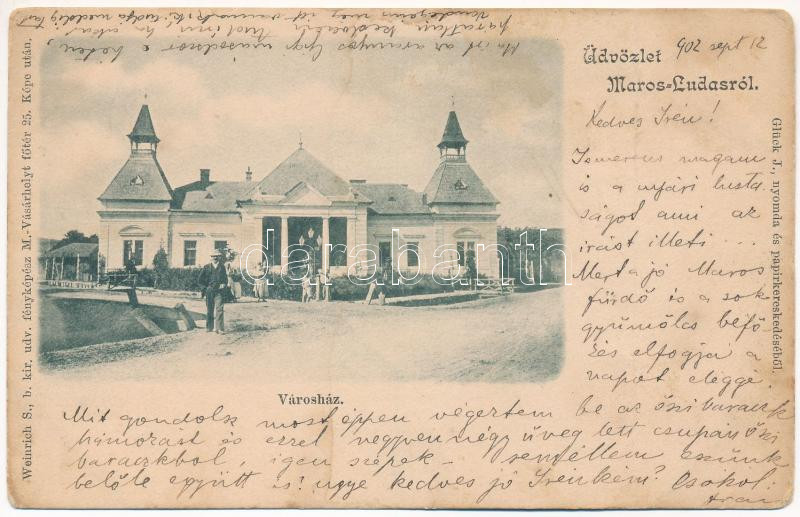 Üdvözlet
Maros-Ludasról.
902 sept 12
Kedves Irén!
Ismerem magam
is a nyári lusta
ságot ami az
irást illeti...
Mert a jó Maros
fürdő is a sok
gyümölcs béfő
zés elfogja a
napot eléggé.
Városház.
Mit gondolsz most éppen végertem be az őszi baraczk
hámozást és ezzel negyvennégy üveg lett csupán őszi
baraczkból, igen szépek - remélem eszünk
belőle együtt is! ugye kedves jó Irénkém? Csókol:
Weinrich S., b. kir. udv. fényképész M.-Vásárhelyt főtér 25. Képe után.
Glück J., nyomda és papirkereskedéséből.
darabanth